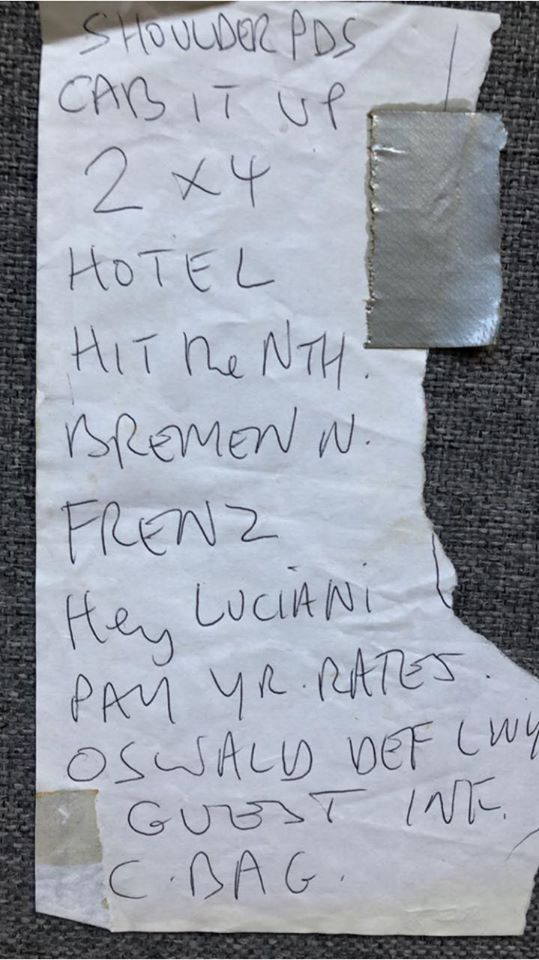 SHOULDER PDS
CAB IT UP
2 x 4
HOTEL
HIT the NTH.
BREMEN N.
FRENZ
Hey LUCIANI
PAY YR. RATES.
OSWALD DEF LWY
GUEST INF.
C. BAG.